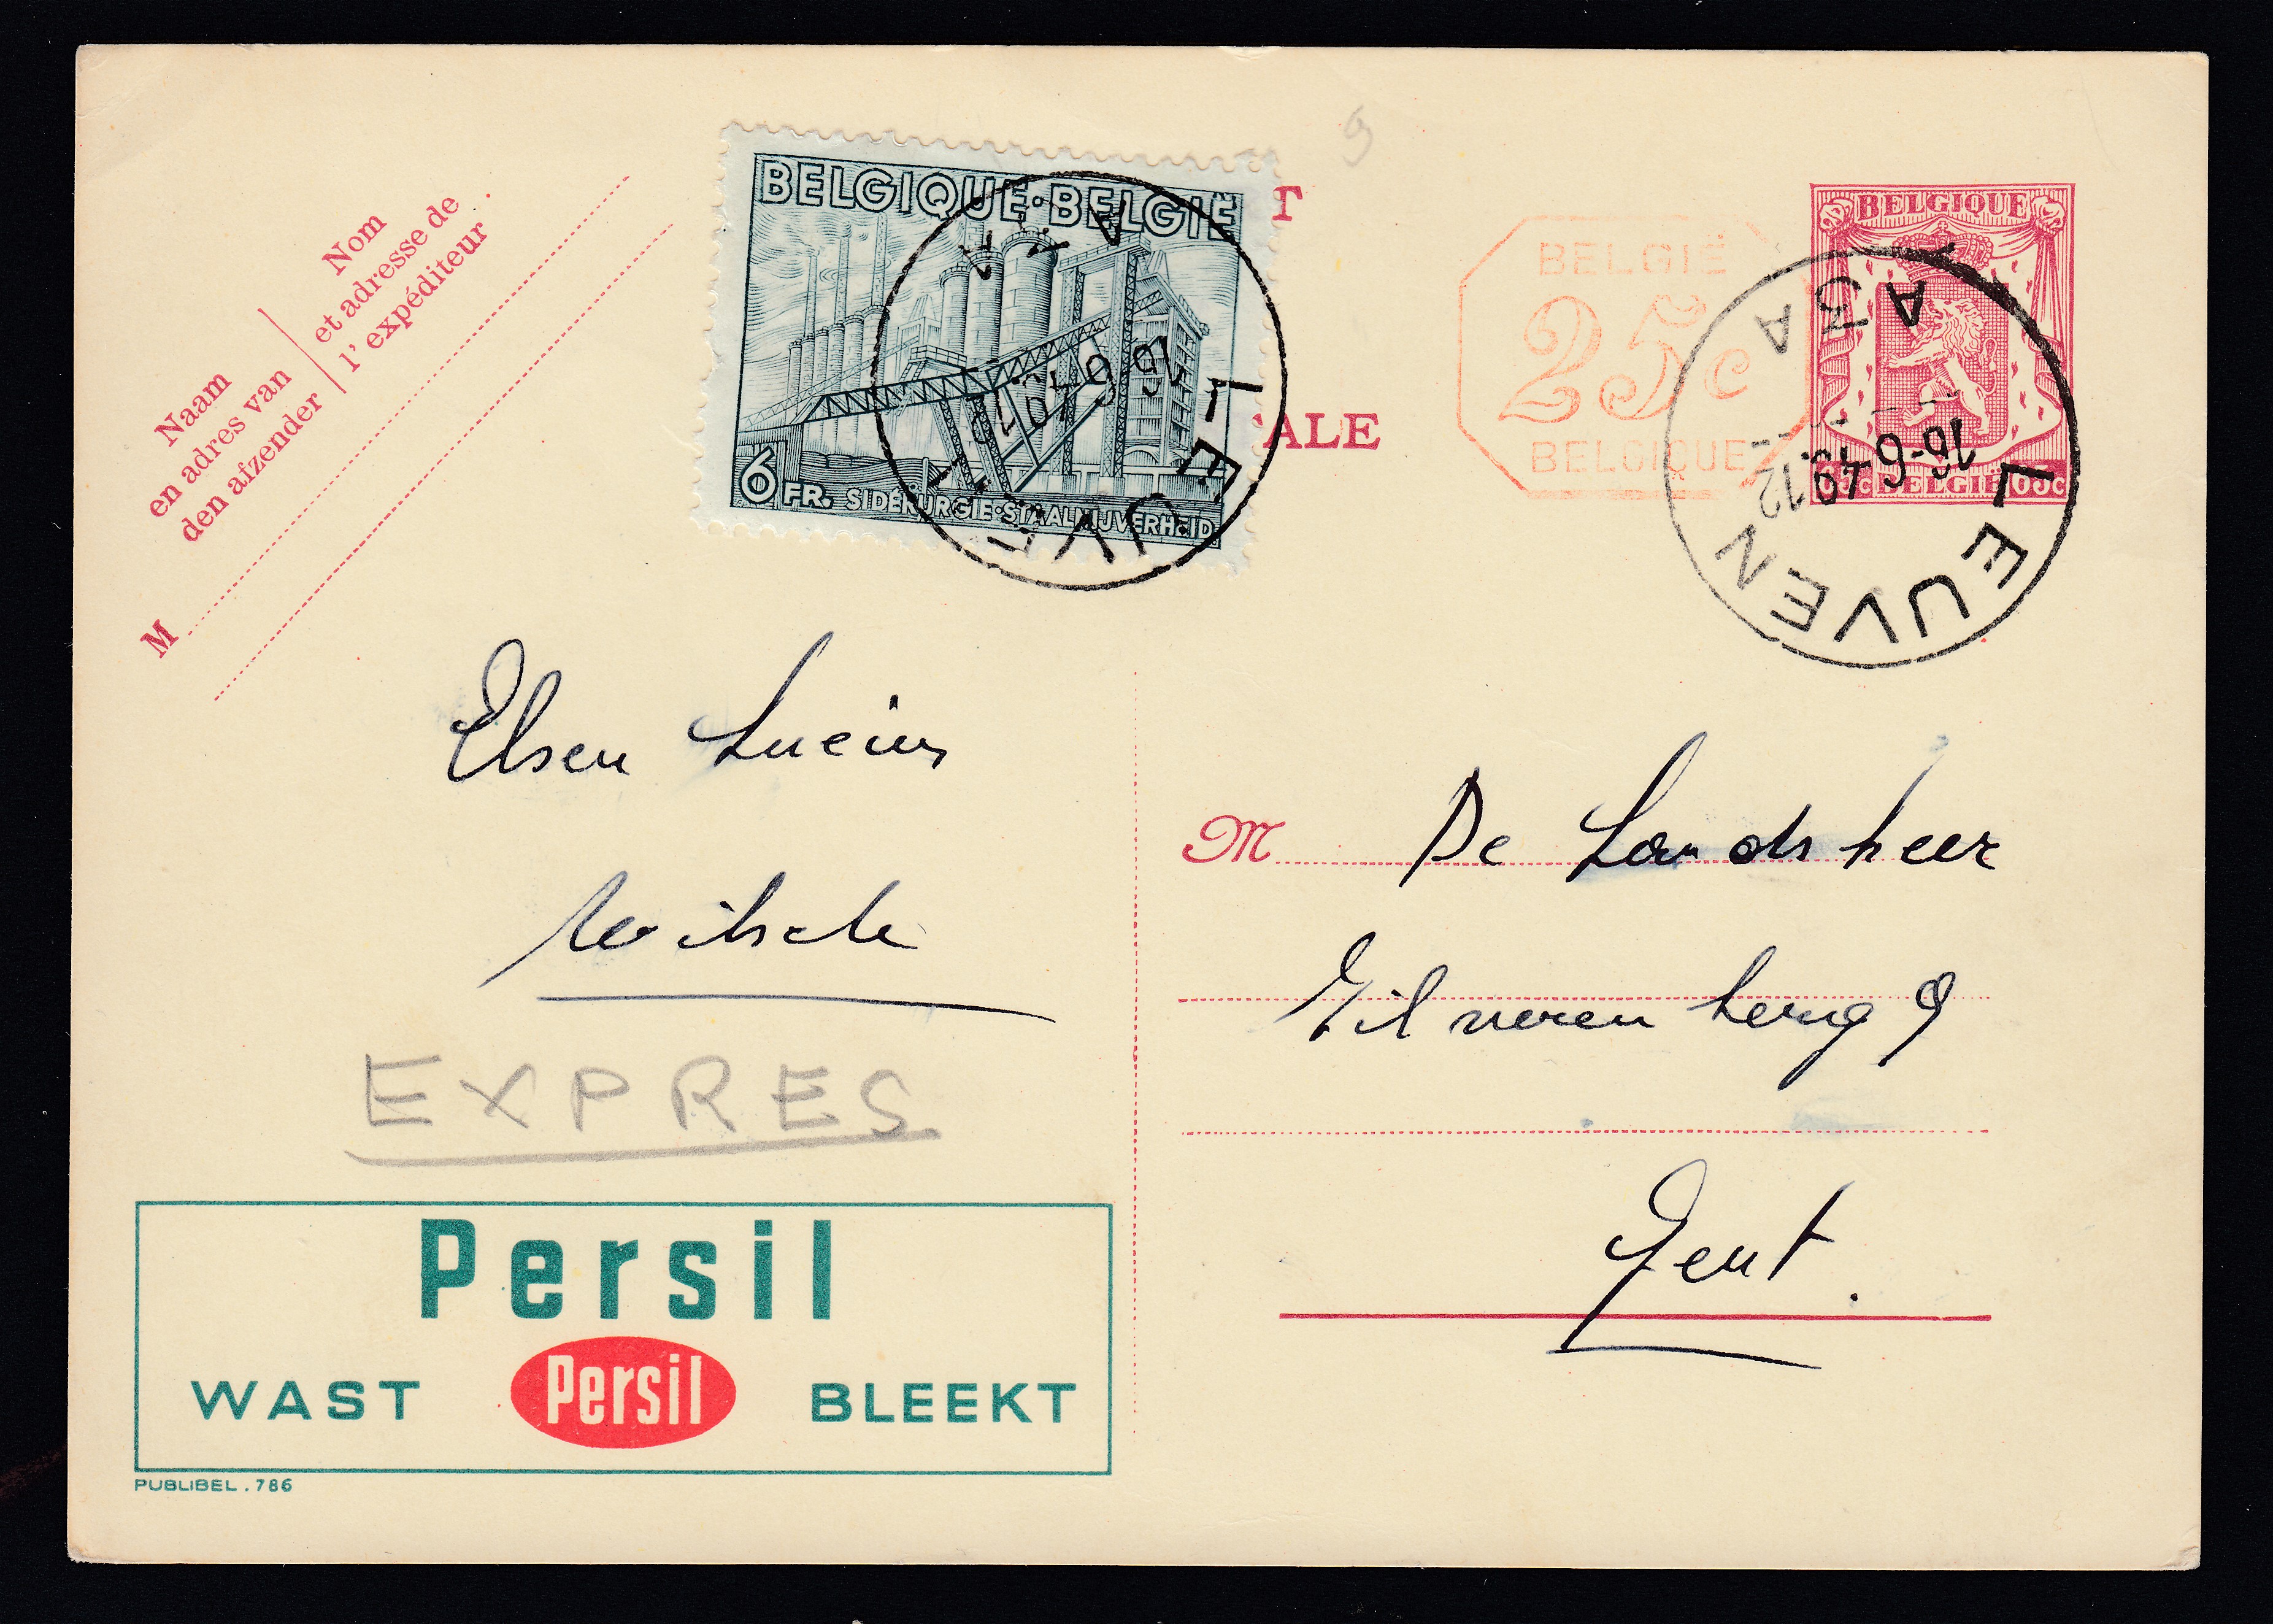 Naam
en adres van
den afzender
Nom
et adresse de
l' expéditeur
M
BELGIQUE·BELGIË
6 FR. SIDÉRURGIE·STAALNIJVERHEID
LEUVEN
A 3 A
16-6-49 12
T
ALE
BELGIË
25c
BELGIQUE
BELGIQUE
65c BELGIË 65c
LEUVEN
A 3 A
16-6-49 12
Elsen Lucien
Wilsele
EXPRES
M De Landsheer
Zilverenberg 9
Gent.
Persil
WAST Persil BLEEKT
PUBLIBEL . 786